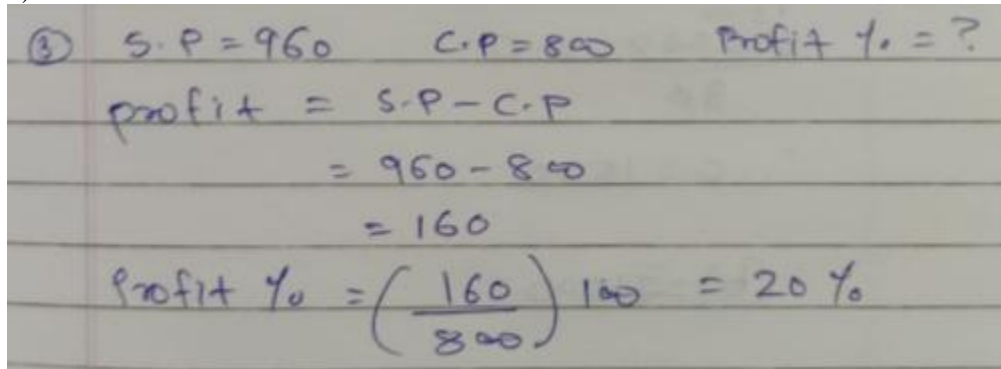 ③ S.P = 960 C.P = 800 Profit % = ?
profit = S.P - C.P
= 960 - 800
= 160
Profit % = (160/800) 100 = 20 %